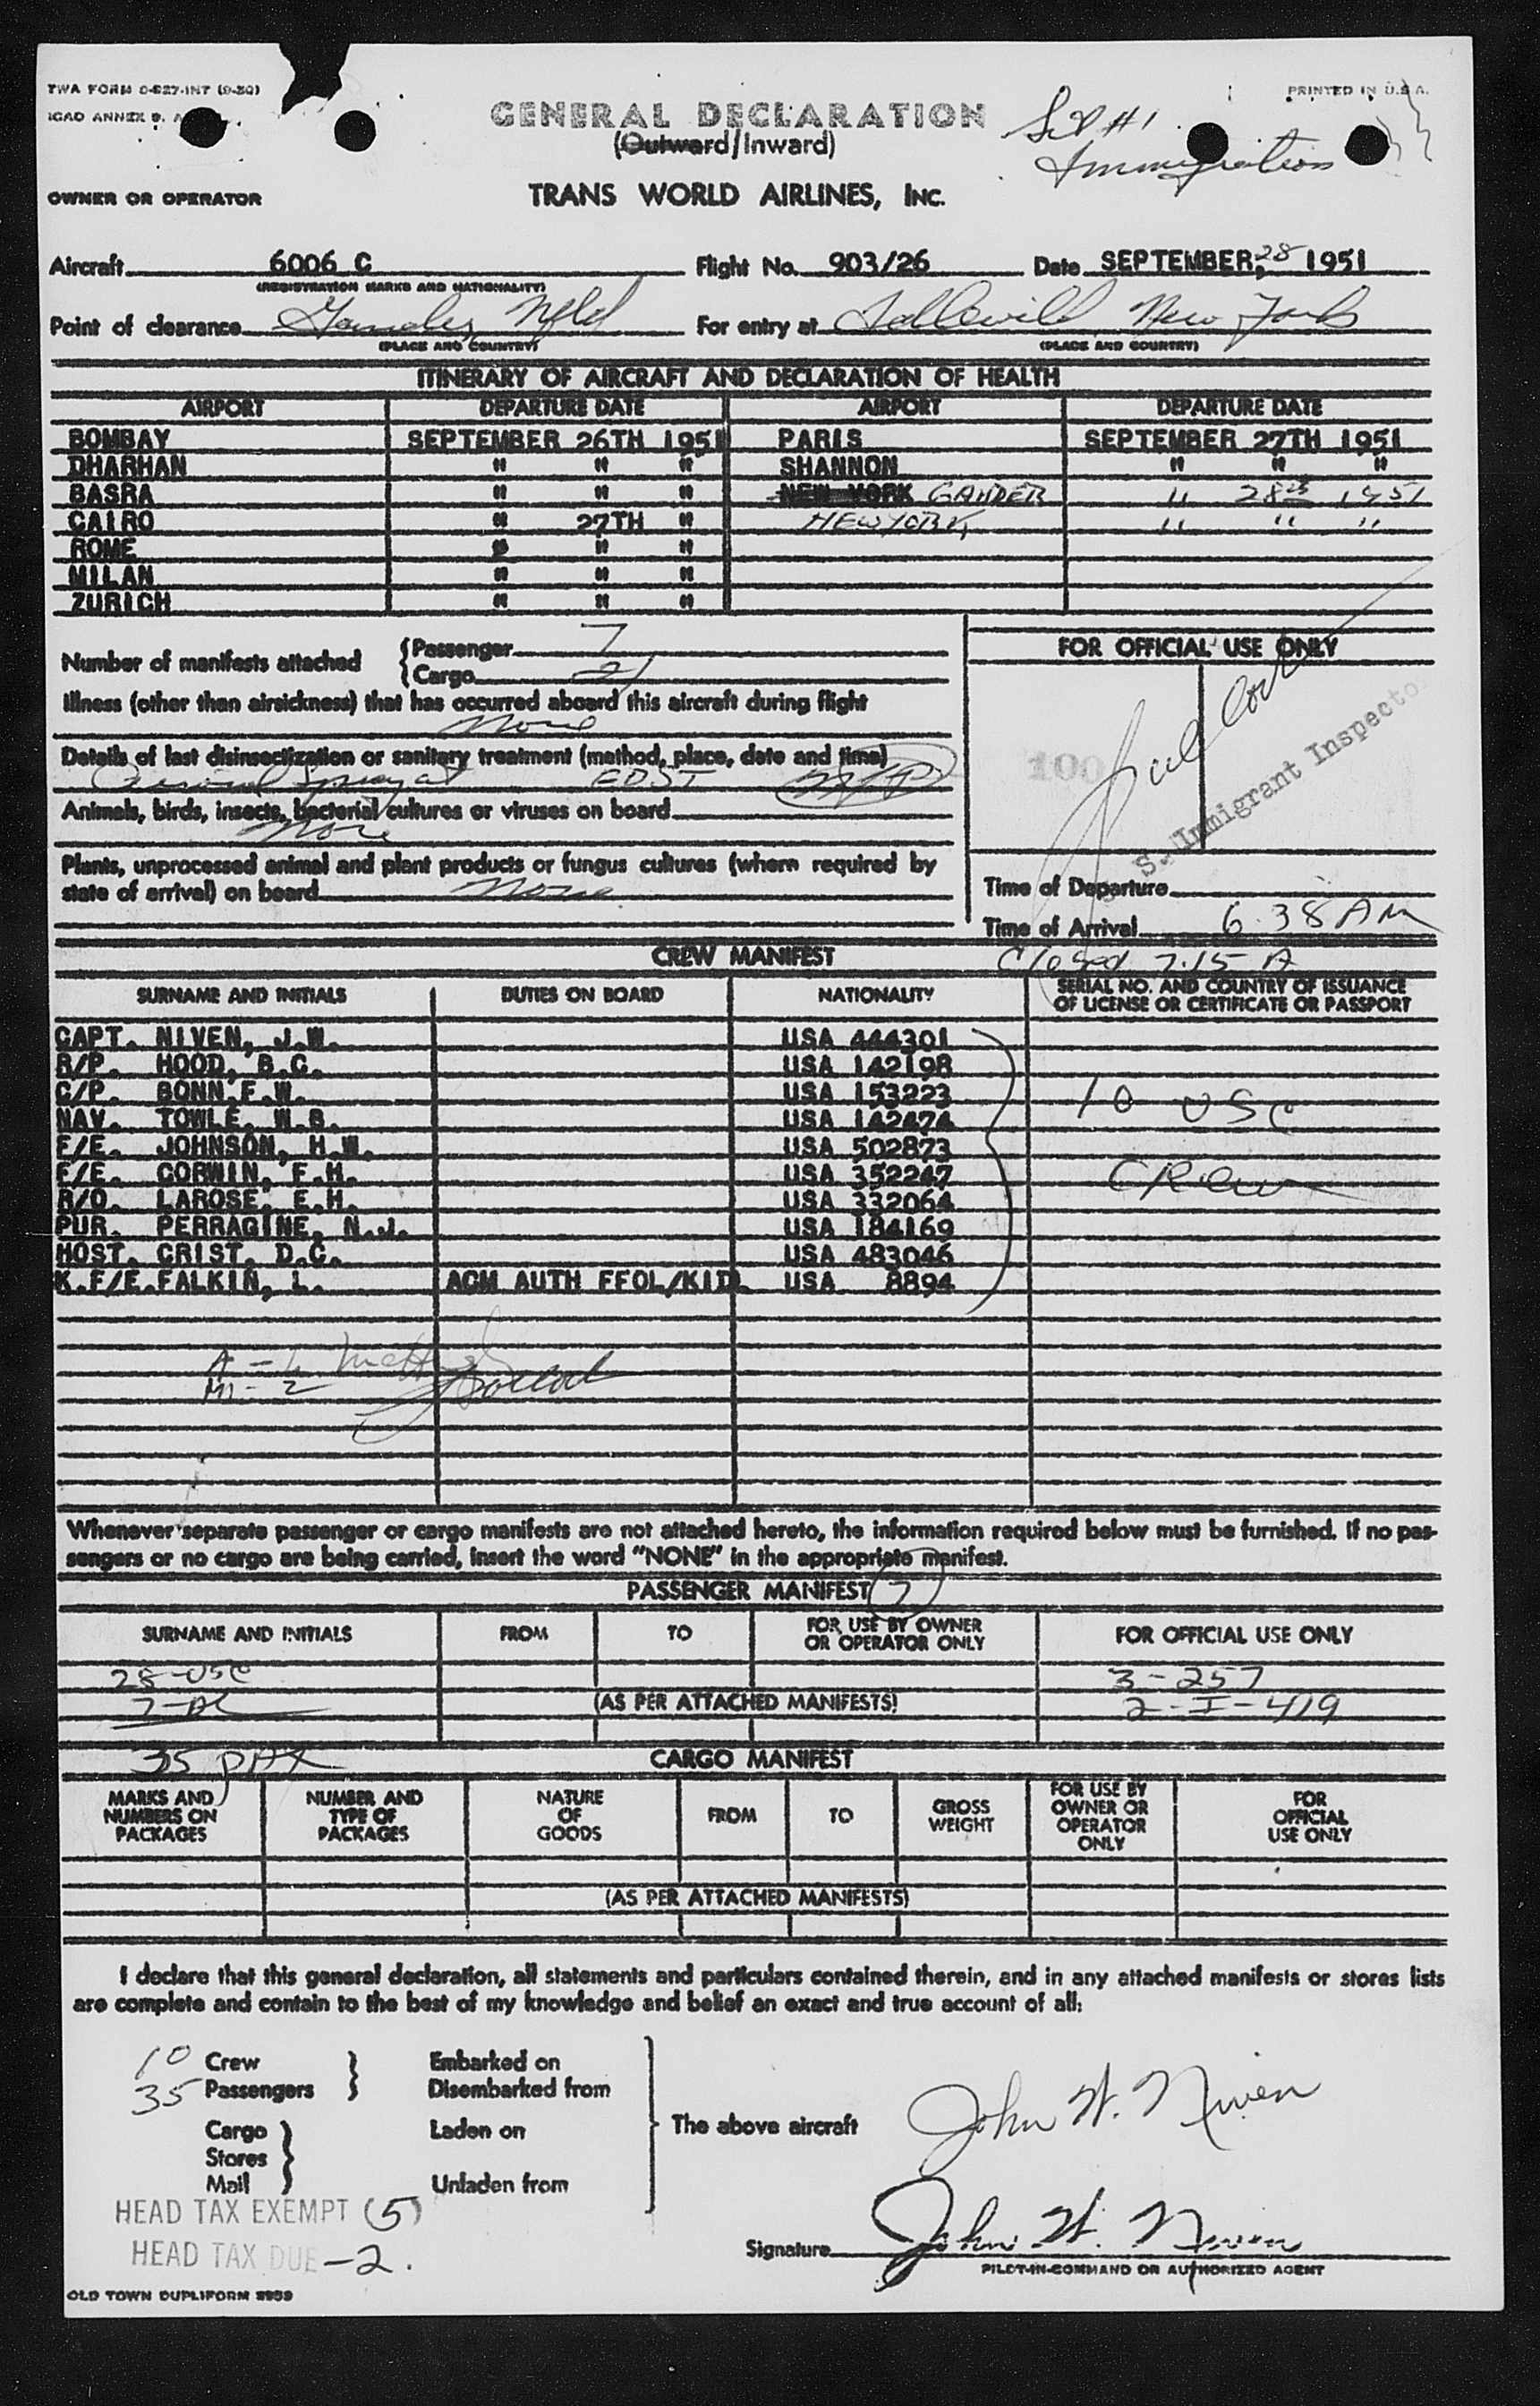 TWA FORM O-827-INT (9-50)
PRINTED IN U.S.A.
ICAO ANNEX 9, A
GENERAL DECLARATION
(Outward/Inward)
Set #1
Immigration
OWNER OR OPERATOR
TRANS WORLD AIRLINES, INC.
Aircraft 6006 C Flight No. 903/26 Date SEPTEMBER, 28 1951
(REGISTRATION MARKS AND NATIONALITY)
Point of clearance Gander, Nfld For entry at Idlewild New York
(PLACE AND COUNTRY) (PLACE AND COUNTRY)
ITINERARY OF AIRCRAFT AND DECLARATION OF HEALTH
AIRPORT DEPARTURE DATE AIRPORT DEPARTURE DATE
BOMBAY SEPTEMBER 26TH 1951 PARIS SEPTEMBER 27TH 1951
DHARHAN " " " SHANNON " " "
BASRA " " " NEW YORK GANDER " 28th 1951
CAIRO " 27TH " NEW YORK, " " "
ROME " " "
MILAN " " "
ZURICH " " "
Number of manifests attached
Passenger 7
Cargo 21
FOR OFFICIAL USE ONLY
Illness (other than airsickness) that has occurred aboard this aircraft during flight
None
Details of last disinsectization or sanitary treatment (method, place, date and time)
Aerosol Spray at EDST
100
Animals, birds, insects, bacterial cultures or viruses on board
None
S. Immigrant Inspector
Plants, unprocessed animal and plant products or fungus cultures (where required by
state of arrival) on board None
Time of Departure
Time of Arrival 6.38 AM
CREW MANIFEST Closed 7.15 A
SURNAME AND INITIALS DUTIES ON BOARD NATIONALITY SERIAL NO. AND COUNTRY OF ISSUANCE
OF LICENSE OR CERTIFICATE OR PASSPORT
CAPT. NIVEN, J.W. USA 444301
R/P. HOOD, B.C. USA 142198
C/P. BONN, F.W. USA 153223
NAV. TOWLE, W.B. USA 142474
F/E. JOHNSON, H.W. USA 502873
F/E. CORWIN, F.H. USA 352247
R/O. LAROSE, E.H. USA 332064
PUR. PERRAGINE, N.J. USA 184169
HOST. CRIST, D.C. USA 483046
K.F/E. FALKIN, L. ACM AUTH FFOL/KID. USA 8894
10 USC
Crew
M1 - 2
Whenever separate passenger or cargo manifests are not attached hereto, the information required below must be furnished. If no pas-
sengers or no cargo are being carried, insert the word "NONE" in the appropriate manifest.
PASSENGER MANIFEST 7
SURNAME AND INITIALS FROM TO FOR USE BY OWNER
OR OPERATOR ONLY FOR OFFICIAL USE ONLY
28-USC 3-257
7-AL (AS PER ATTACHED MANIFESTS) 2-I-419
35 PAX CARGO MANIFEST
MARKS AND
NUMBERS ON
PACKAGES
NUMBER AND
TYPE OF
PACKAGES
NATURE
OF
GOODS
FROM
TO
GROSS
WEIGHT
FOR USE BY
OWNER OR
OPERATOR
ONLY
FOR
OFFICIAL
USE ONLY
(AS PER ATTACHED MANIFESTS)
I declare that this general declaration, all statements and particulars contained therein, and in any attached manifests or stores lists
are complete and contain to the best of my knowledge and belief an exact and true account of all:
10 Crew Embarked on
35 Passengers Disembarked from
Cargo Laden on The above aircraft John W. Niven
Stores
Mail Unladen from
HEAD TAX EXEMPT (5)
HEAD TAX DUE -2.
Signature John W. Niven
PILOT-IN-COMMAND OR AUTHORIZED AGENT
OLD TOWN DUPLIFORM 2959